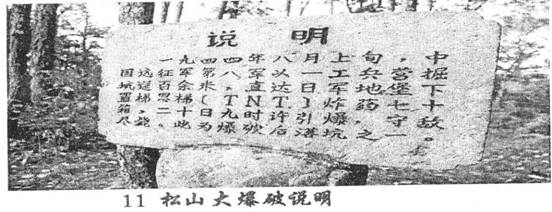 说明
一九四四年八月上旬，中
国远征军第八军以一工兵营掘
坑道百余米，直达日军地堡下
遂置梯恩梯(TNT)炸药十七
箱，二十日九时许引爆，守敌
尽此为爆后坑之一。
11 松山大爆破说明